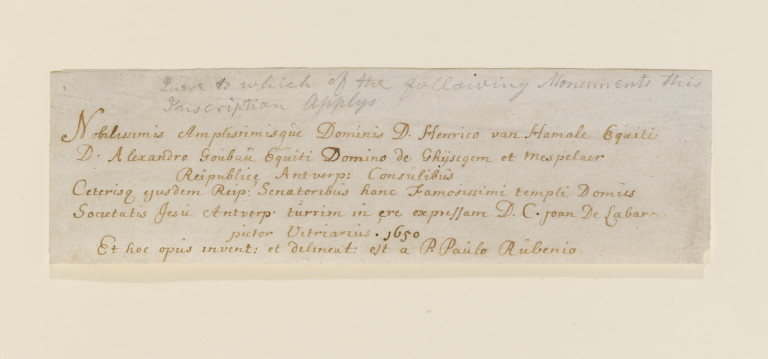 Quere to which of the following Monuments this
Inscription Applys
Nobilissimis Amplissimisquè Dominis D. Henrico van Hamale Equiti
D. Alexandro Goubaù Equiti Domino de Ghÿsegem et Mespelaer
Reipublicę Antverp: Consulibus
Ceterisq ejusdem Reip: Senatoribus hanc Famosissimi templi Domus
Societatis Jesù Antverp tùrrim in ęre expressam D. C. Joan De Labarr
pictor Vitriarius. 1650
Et hoc opus invent: et delineat: est a P. Paùlo Rùbenio